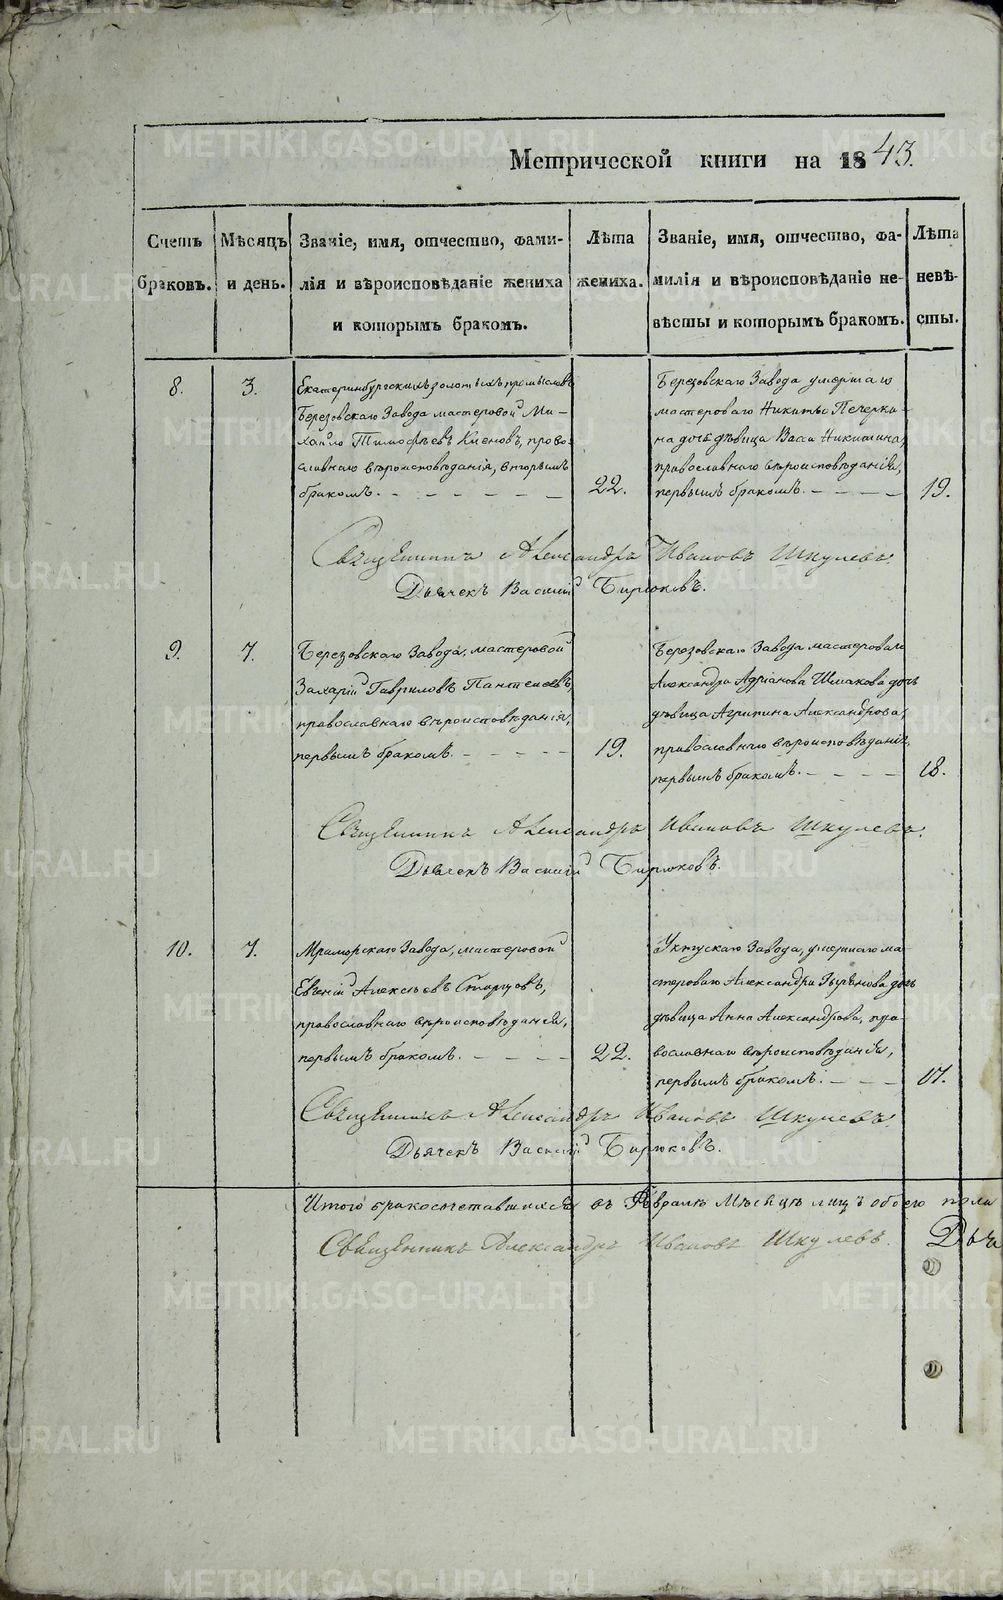 Метрической книги на 1843.
Счетъ браковъ.
Мѣсяцъ и день.
Званіе, имя, отчество, фами-
лія и вѣроисповѣданіе жениха
и которымъ бракомъ.
Лѣта жениха.
Званіе, имя, отчество, фа-
милія и вѣроисповѣданіе не-
вѣсты и которымъ бракомъ.
Лѣта невѣ-
сты.
8.
3.
Екатеринбургскихъ золотыхъ промысловъ
Березовскаго Завода мастеровой Ми-
хайло Тимофѣевъ, право-
славнаго вѣроисповѣданія, вторымъ
бракомъ.
22.
Березовскаго Завода умершаго
мастероваго Никиты Печерки-
на дочь дѣвица Васса Никитина,
православнаго вѣроисповѣданія,
первымъ бракомъ.
19.
Священникъ Александръ Ивановъ Шкулевъ.
Дьячекъ Василій Бирюковъ.
9.
7.
Березовскаго Завода, мастеровой
Захарій Гавриловъ Пантелеевъ,
православнаго вѣроисповѣданія,
первымъ бракомъ.
19.
Березовскаго Завода мастероваго
Александра Адріанова Шмакова дочь
дѣвица Агрипина Александрова,
православнаго вѣроисповѣданія,
первымъ бракомъ.
18.
Священникъ Александръ Ивановъ Шкулевъ.
Дьячекъ Василій Бирюковъ.
10.
7.
Мраморскаго Завода, мастеровой
Евгеній Алексѣевъ Старцовъ,
православнаго вѣроисповѣданія,
первымъ бракомъ.
22.
Уктускаго Завода, умершаго ма-
стероваго Александра дочь
дѣвица Анна Александрова, пра-
вославнаго вѣроисповѣданія,
первымъ бракомъ.
17.
Священникъ Александръ Ивановъ Шкулевъ.
Дьячекъ Василій Бирюковъ.
Итого бракосочетавшихся въ Февралѣ Мѣсяцѣ лицъ обоего пола
Священникъ Александръ Ивановъ Шкулевъ. Дьяч
METRIKI.GASO-URAL.RU